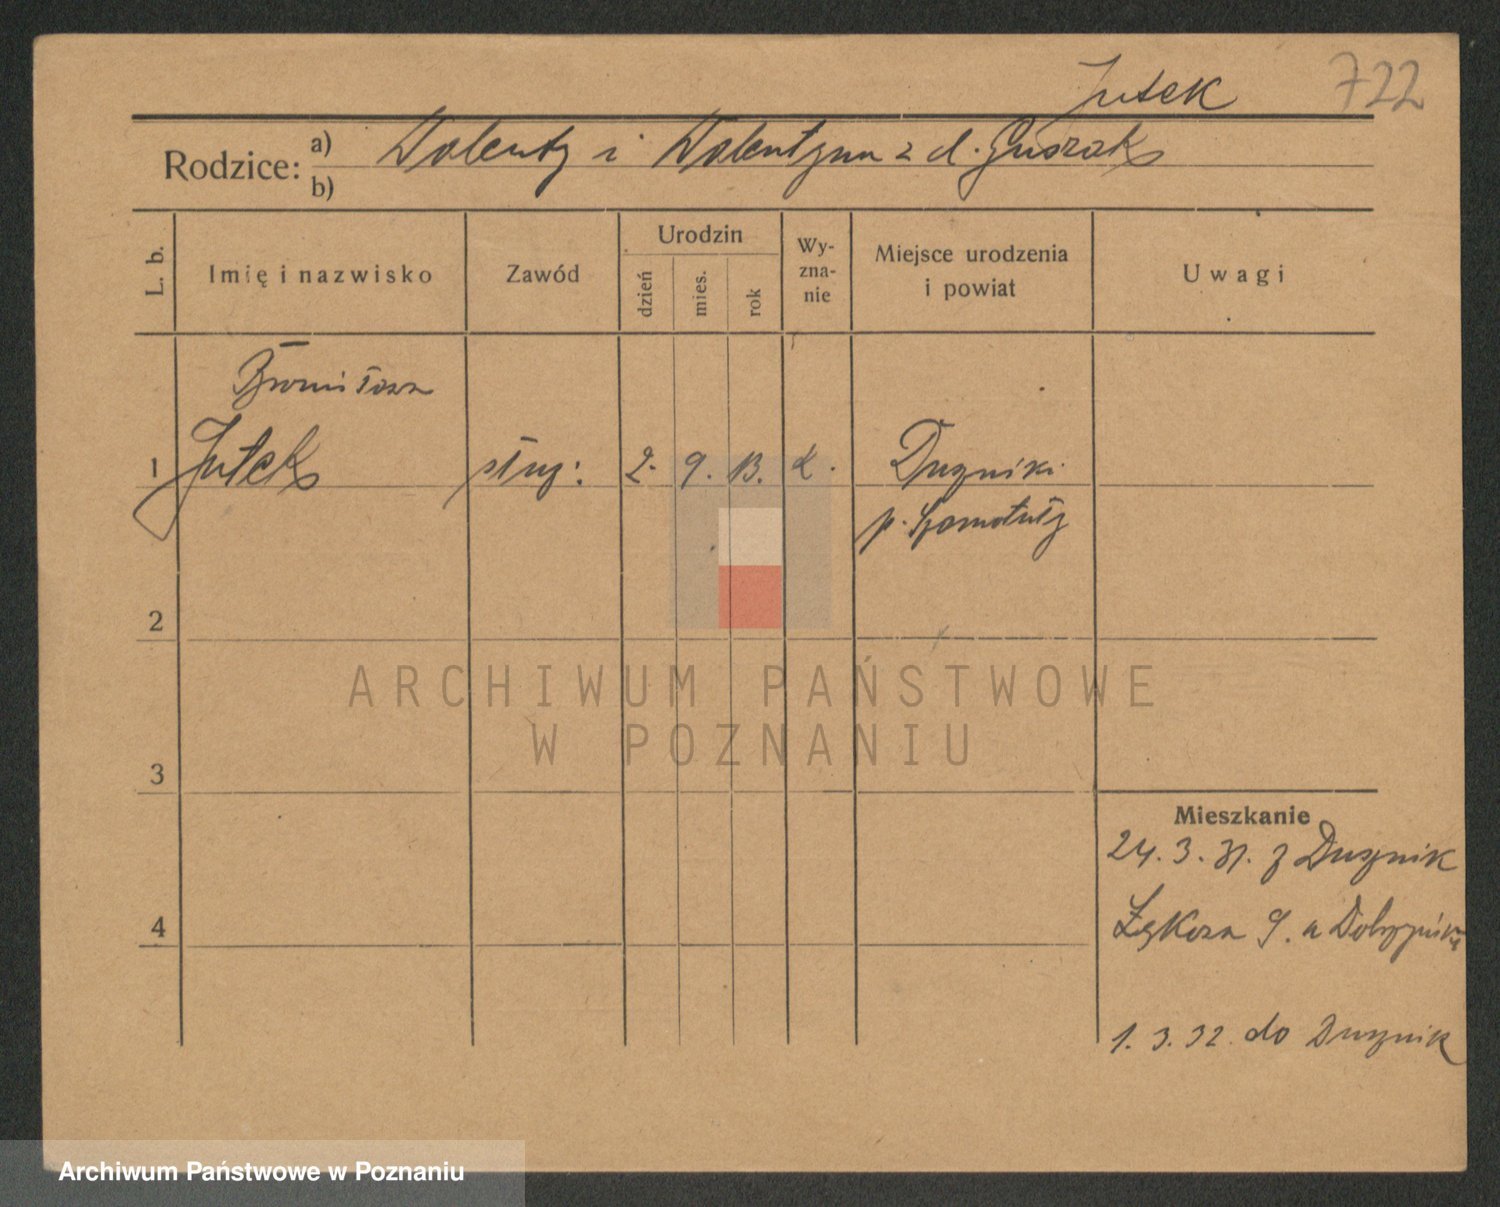 Jutek 722
Rodzice: a) Walenty i Walentyna z d. Guszak
b)
L. b.
Imię i nazwisko
Zawód
Urodzin
dzień
mies.
rok
Wy-
zna-
nie
Miejsce urodzenia
i powiat
Uwagi
Bronisława
1 Jutek służ: 2. 9. 13. k. Duszniki
p. Szamotuły
2
ARCHIWUM PAŃSTWOWE
W POZNANIU
3
Mieszkanie
24. 3. 31. z Dusznik
4
Łąkowa 9. u
1. 3. 32. do Dusznik
Archiwum Państwowe w Poznaniu